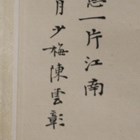 一片江南
月少梅陳雲彰